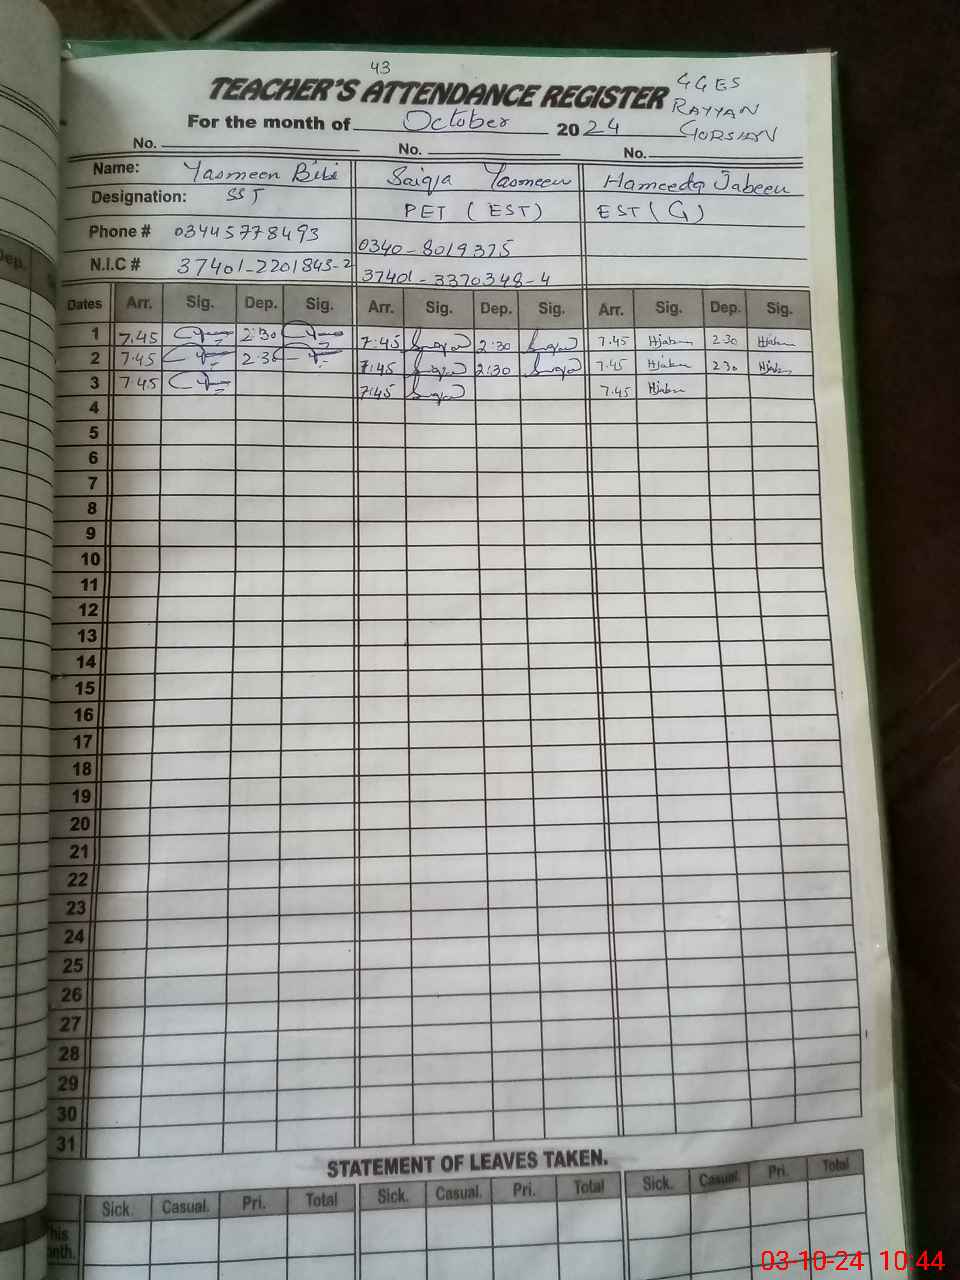 43
TEACHER'S ATTENDANCE REGISTER GGES
RAYYAN
For the month of October 2024 GORSIAN
No. No. No.
Name: Yasmeen Bibi Saiqa Yasmeen Hameeda Jabeen
Designation: SST PET (EST) EST (G)
Phone # 03445778493 0340-8019375
N.I.C # 37401-2201843-2 37401-3370348-4
Dep. Dates Arr. Sig. Dep. Sig. Arr. Sig. Dep. Sig. Arr. Sig. Dep. Sig.
1 7.45 2:30 7:45 2:30 7.45 Hjabeen 2.30 Hjabeen
2 7.45 2:30 7:45 2:30 7.45 Hjabeen 2.30 Hjabeen
3 7.45 7:45 7.45 Hjabeen
4
5
6
7
8
9
10
11
12
13
14
15
16
17
18
19
20
21
22
23
24
25
26
27
28
29
30
31
STATEMENT OF LEAVES TAKEN.
Sick. Casual. Pri. Total Sick. Casual. Pri. Total Sick. Casual. Pri. Total
03-10-24 10:44